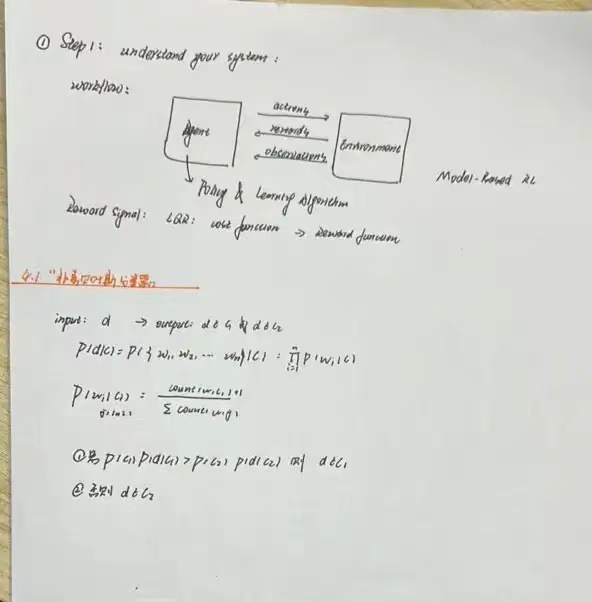 ① Step 1: understand your system:
workflow:
Agent
actions
rewards
observations
Environment
Model-Based RL
Policy & Learning Algorithm
Reward Signal: LQR: cost function → Reward function
4.1 "朴素贝叶斯分类器"
input: d → output: d∈C₁ 或 d∈C₂
P(d|C) = P({w₁, w₂, ... wₙ}|C) = ∏ᵢ₌₁ⁿ P(wᵢ|C)
P(wᵢ|Cᵢ) = count(wᵢCᵢ)+1 / Σ count(wᵢ
① 若 P(C₁)P(d|C₁) > P(C₂)P(d|C₂) 则 d∈C₁
② 否则 d∈C₂